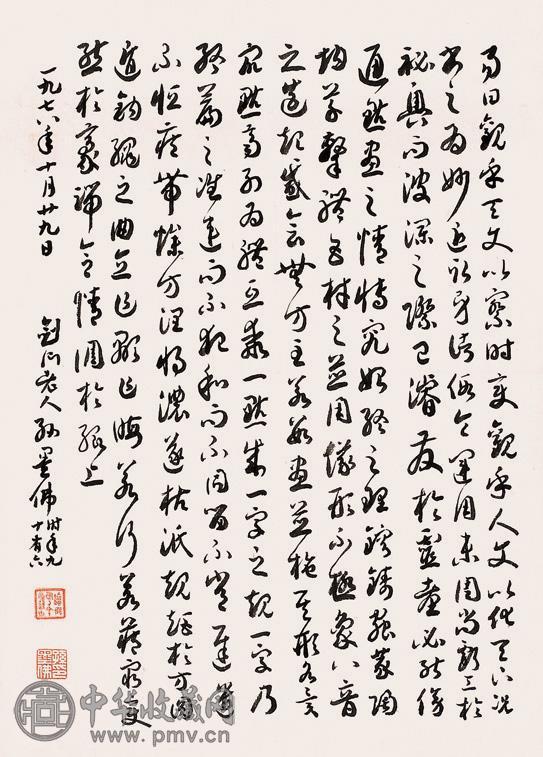 易曰觀乎天文以察时变觀乎人文以化天下況
書之為妙近取諸身假令運用未周尚虧工於
秘奧而波瀾之際已濬發於靈臺必能傍
通點畫之情博究始終之理鎔鑄蟲篆陶
均草隸體五材之並用儀形不極象八音
之迭起感會無方至若數畫並施其形各異
眾點齊列為體互乖一點成一字之規一字乃
終篇之準違而不犯和而不同留不常遲遣
不恒疾帶燥方潤將濃遂枯泯規矩於方圓
遁鉤繩之曲直乍顯乍晦若行若藏窮變
態於豪端合情調於紙上
一九七八年十月廿九日
劍门老人孫墨佛
时年九
十有六
中华收藏网
www.pmv.cn